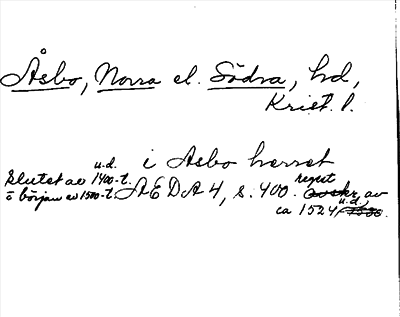 Åsbo, Norra el. Södra, hd,
Krist. l.
i Asbo herret
u.d.
Slutet av 1400-t.
o början av 1500-t. AEDA 4, s. 400. regest av
ca 1524, u.d.,